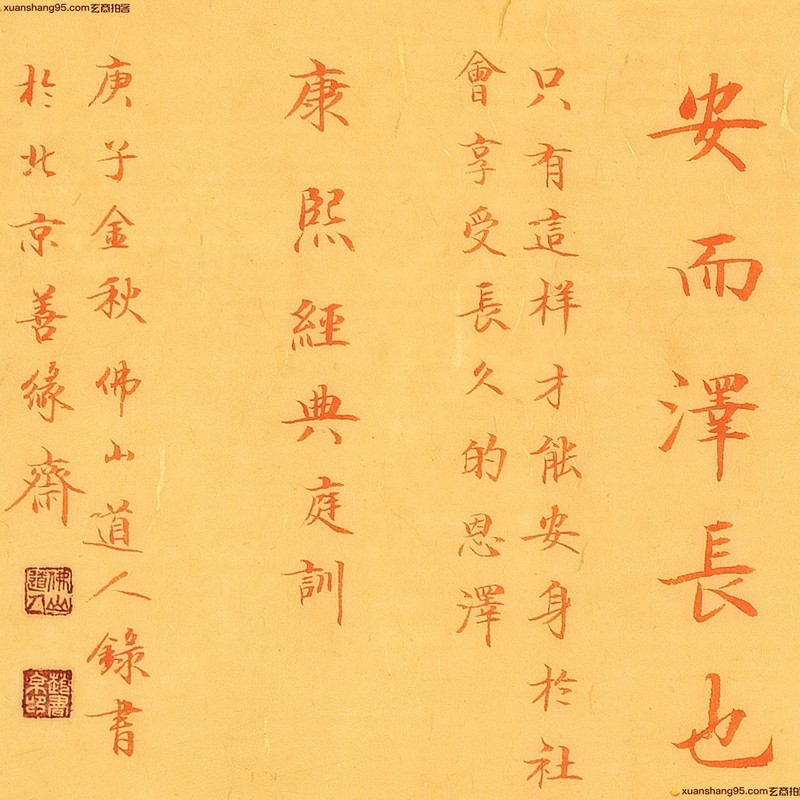 xuanshang95.com玄商拍客
安而澤長也
只有這样才能安身於社
會享受長久的恩澤
康熙經典庭訓
庚子金秋佛山道人錄書
於北京善緣齋
佛山
道人
xuanshang95.com玄商拍